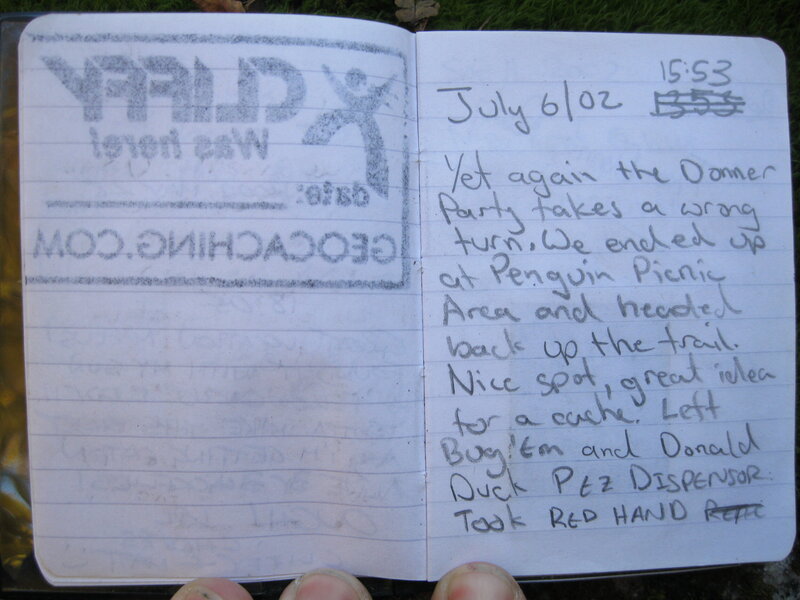 CLIFFY
Was here!
date:
GEOCACHING.COM
15:53
July 6/02 1353
Yet again the Donner
Party takes a wrong
turn. We ended up
at Penguin Picnic
Area and headed
back up the trail.
Nice spot, great idea
for a cache. Left
Bug'Em and Donald
Duck PEZ DISPENSOR.
Took RED HAND